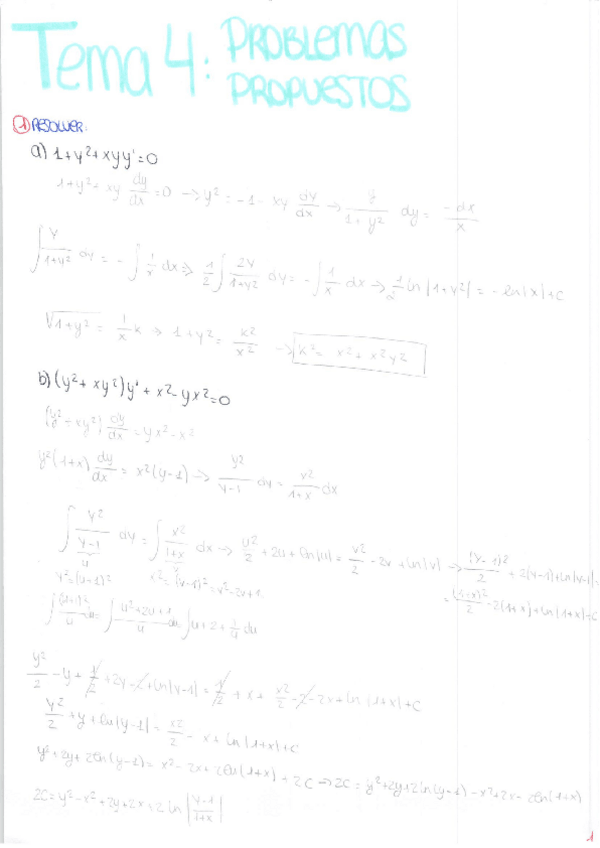 Tema 4: PROBLEMAS PROPUESTOS
① RESOLVER:
a) 1+y²+xyy'=0
1+y²+xy dy/dx =0 → y² = -1 - xy dy/dx → y/(1+y²) dy = -dx/x
∫ y/(1+y²) dy = - ∫ 1/x dx ⇒ 1/2 ∫ 2y/(1+y²) dy = - ∫ 1/x dx → 1/2 ln|1+y²| = -ln|x|+C
√(1+y²) = 1/x k ⇒ 1+y² = k²/x² → k² = x²+x²y²
b) (y²+xy²)y' + x²-yx²=0
(y²+xy²) dy/dx = yx²-x²
y²(1+x) dy/dx = x²(y-1) → y²/(y-1) dy = x²/(1+x) dx
∫ y²/(y-1) dy = ∫ x²/(1+x) dx → u²/2 + 2u + ln|u| = v²/2 - 2v + ln|v| → (y-1)²/2 + 2(y-1)+ln|y-1| =
u v
y²=(u-1)² x²=(v-1)²=v²-2v+1
= (1+x)²/2 - 2(1+x)+ln|1+x|+C
∫ (u+1)²/u du = ∫ (u²+2u+1)/u du ∫ u+2+1/u du
y²/2 - y + 1/2 + 2y - 2 + ln|y-1| = 1/2 + x + x²/2 - 2 - 2x + ln|1+x|+C
y²/2 + y + ln|y-1| = x²/2 - x + ln|1+x|+C
y²+2y+2ln(y-1) = x²-2x+2ln(1+x)+2C ⇒ 2C = y²+2y+2ln(y-1)-x²+2x-2ln(1+x)
2C = y²-x²+2y+2x+2 ln |(y-1)/(1+x)|
1